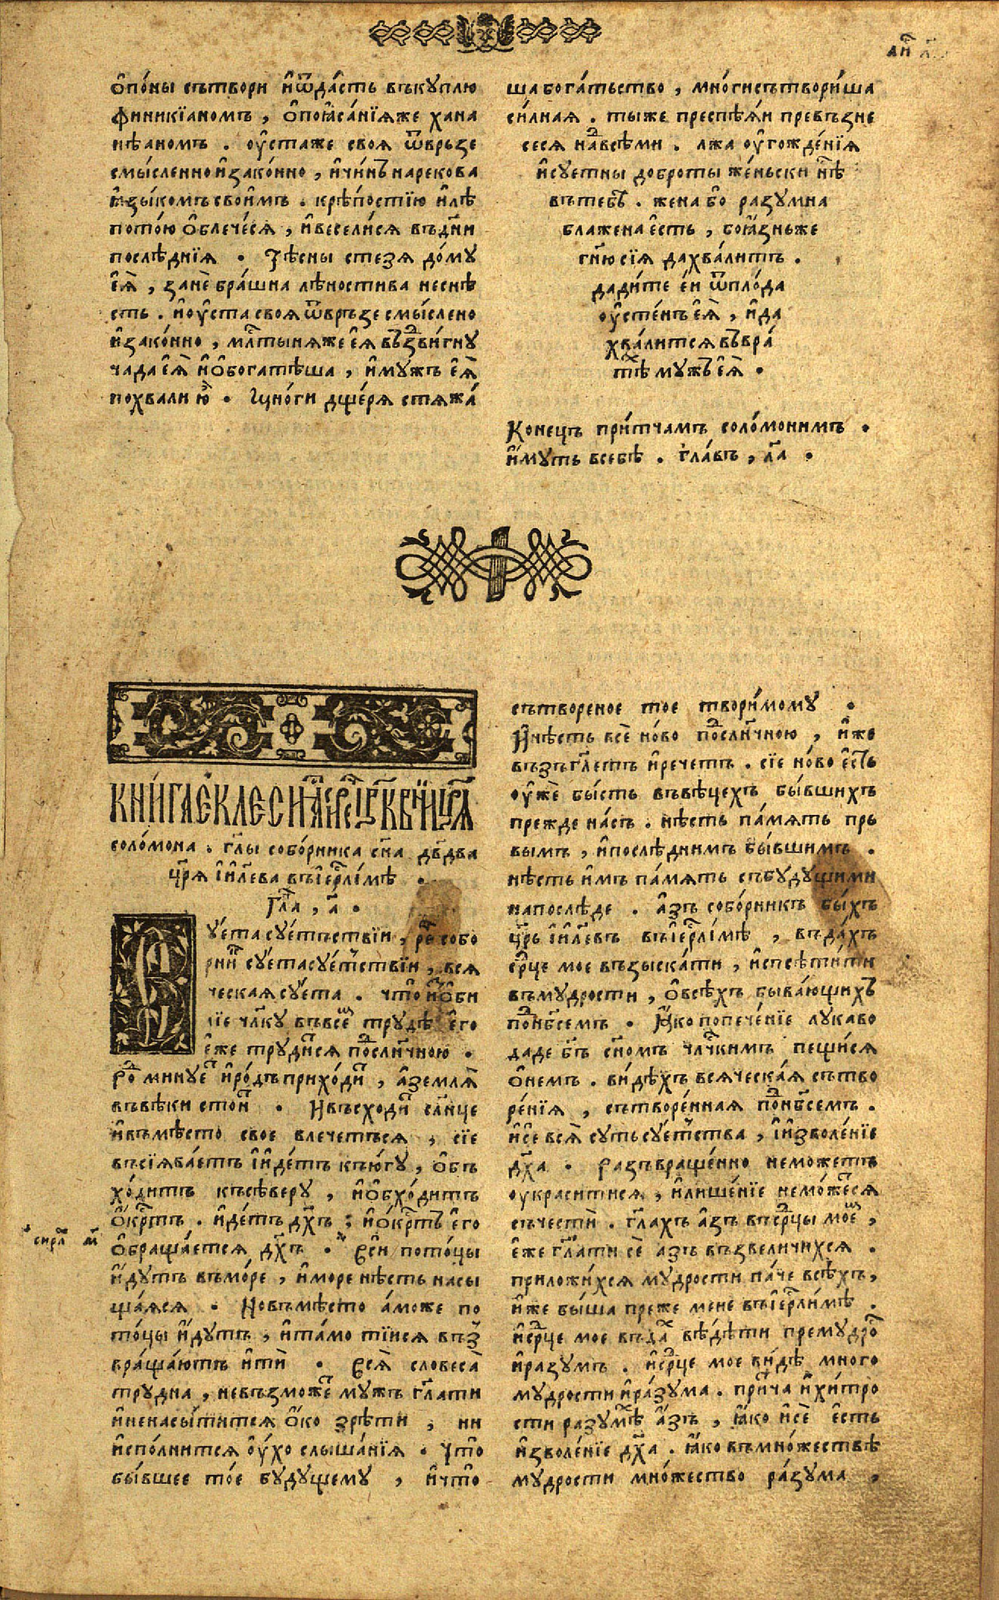 ѻ҆по́ны сътвори и҆ѿда́сть въкуплю
финикїаномъ , ѻ҆поꙗ҆са́нїѧже хана
нѣаномъ . оу҆стаже своѧ ѿврьзе
смы́сленно и҆зако́нно , и҆чи́нъ нарекова
ꙗ҆зы́комъ свои́мъ . крѣ́постїю и҆лѣ
потою ѻ҆блече́сѧ , и҆весели́сѧ въдн҃и
послѣ́днїѧ . Тѣ́сны стезѧ до́му
еѧ҆̀ , занѐ бра́шна лѣностива неснѣ
сть . и҆оу҆ста своѧ ѿврьзе смы́слено
и҆зако́нно , млⷭ҇тынѧже еѧ҆̀ възⷣви́гну
чада еѧ҆̀ и҆ѻ҆богатѣша , и҆мужъ еѧ҆̀
похвали ю҆̀ . Мно́ги дще́рѧ стѧжа́
ша бога́тьство , мно́ги сътвори́ша
си́лнаѧ . тыже преспѣѧ́и превъзне
сесѧ наⷣвсѣ́ми . лжа оу҆гожде́нїѧ
и҆суетны доброты же́ньски нѣⷭ
вътебѣ̀ . жена бо разумна
блажена е҆сть , боꙗ́зньже
гн҃ю сїѧ дахва́литъ .
дади́те е҆́и ѿпло́да
оу҆сте́нъ еѧ҆̀ , и҆да
хва́литсѧ въвра
тѣⷯ му́жъ еѧ҆̀ .
Коне́цъ при́тчамъ соло́монимъ .
и҆́муть всебѣ . гла́въ , л҃а .
КНИ́ГА Є҆КЛЕСИА́СТЪ
соло́мона . гл҃ы собо́рника сн҃а дв҃два
цр҃ѧ і҆и҃лева въіе҆рⷭ҇ли́мѣ .
Глаⷡ , а҃ .
Суета суе́тъствїи , реⷱ҇ собо
рниⷦ҇ суета суеⷮствїи , всѧ
ческаѧ суе́та . что̀ и҆з̾ѻби
лїе чл҃ку въвсеⷨ трудѣ̀ е҆го̀
е҆́же труди́сѧ пⷪ҇дсл҃нчною .
Роⷣ минуеⷮ и҆ро́дъ прихо́диⷮ , а҆землѧ̀
въвѣ́ки стои́ⷮ . И҆въсхо́диⷮ сл҃нце
и҆въмѣ́сто свое влечетьсѧ , сїе
въсїѧва́етъ і҆иде́тъ къю́гу , ѻ҆бъ
хо́дитъ късѣ́веру , и҆ѻ҆бхо́дитъ
ѻ҆́крⷭ҇тъ . и҆де́тъ дх҃ъ ; и҆ѻ҆́крⷭ҇тъ е҆го
ѻ҆браща́етсѧ дх҃ъ . Всѝ пото́цы
и҆ду́тъ въмо́ре , и҆море нѣ́сть насы
ща́ѧсѧ . Новъмѣ́сто а҆́може по
то́цы и҆ду́тъ , и҆та́мо тїисѧ въз̾
враща́ють и҆тѝ . Всѧ̀ словеса̀
трудна , невъзмо́жеⷮ мужъ гл҃ати
и҆ненасы́титсѧ ѻ҆́ко зрѣ́ти , ни
и҆спо́лнитсѧ оу҆́хо слы́шанїѧ . что̀
бы́вшее то́е будущему , и҆что̀
сътвореное тое твори́мому .
И҆нѣ́сть всѐ но́во поⷣсл҃нчною , и҆́же
възъгл҃етъ и҆рече́тъ . сїе но́во е҆́сть
оу҆жѐ бы́сть въвѣ́цехъ бы́вшихъ
прежде на́съ . нѣ́сть па́мѧть пръ
вымъ , и҆послѣ́днимъ бы́вшимъ .
нѣ́сть и҆́мъ па́мѧть събу́дущими
напослѣ́де . а҆́зъ собо́рникъ бы́хъ
цр҃ь і҆и҃левъ въіе҆рⷭ҇ли́мѣ , въда́хъ
срⷣце мое възыска́ти , и҆спы́тати
въмудрости , ѻ҆всѣ́хъ быва́ющихъ
поⷣнб҃семъ . Ꙗ҆́ко попече́нїе лукаво
даде бг҃ъ сн҃омъ чл҃чкимъ пещи́сѧ
ѻ҆не́мъ . ви́дѣхъ всѧ́ческаѧ сътво
ре́нїѧ , сътворе́ннаѧ поⷣнб҃семъ .
и҆се всѧ̀ су́ть суеⷮства , і҆изволе́нїе
дх҃а . Разъвраще́нно неможетъ
оу҆краситисѧ , и҆лише́нїе немо́жеⷮсѧ
съчести́ . гл҃ахъ а҆зъ въсрⷣцы мое́ⷨ ,
е҆́же гл҃ати сѐ азъ възвеличихсѧ .
приложи́хсѧ мудрости па́че всѣ́хъ ,
и҆же бы́ша преже мене въіе҆рⷭ҇ли́мѣ .
и҆срⷣце мое въдаⷯ вѣ́дѣти премудроⷭ
и҆разумъ . и҆срⷣце мое ви́дѣ много
мудрости и҆ра́зума . при́тча и҆хи́тро
сти разумѣⷯ а҆́зъ , ꙗ҆́ко и҆сѐ е҆сть
и҆зволе́нїе дх҃а . ꙗ҆́ко вѣмно́жествѣ
мудрости мно́жество ра́зума ,
сираⷯ м҃